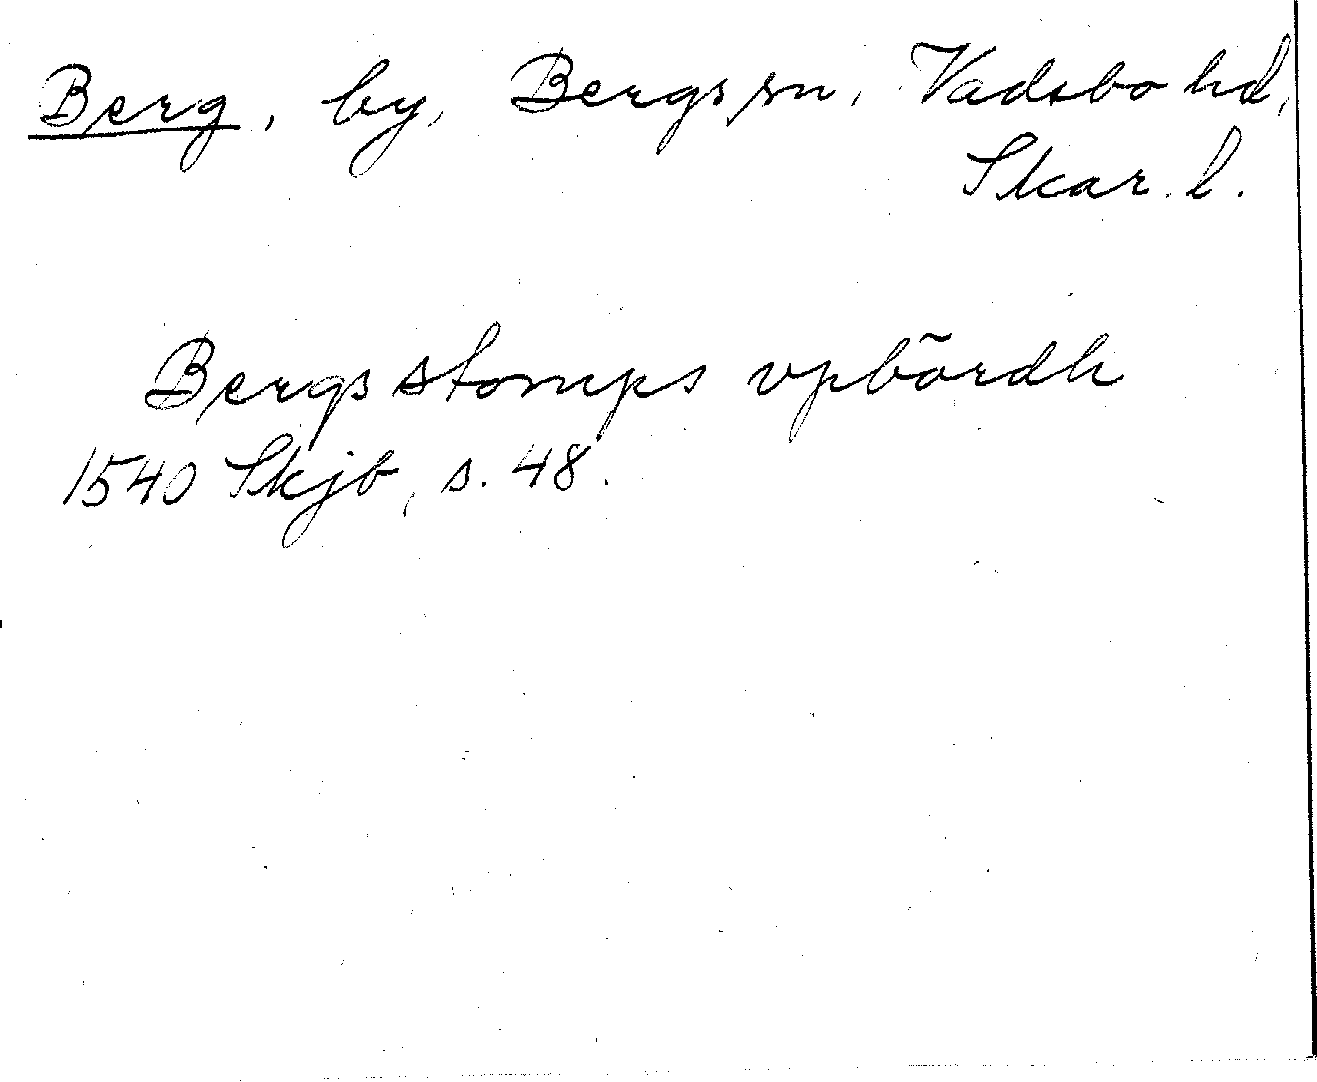 Berg, by, Bergs sn, Vadsbo hd,
Skar. l.
Bergs stomps vpbördh
1540 Skjb, s. 48.